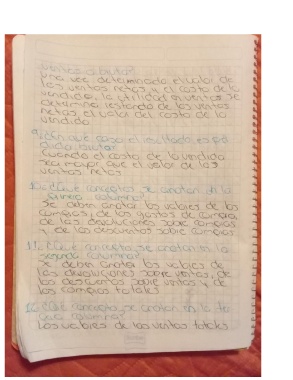 ventas o bruta?
Una vez determinado el valor de
las ventas netas y el costo de lo
vendido, la utilidad en ventas se
determina restando de las ventas
netas el valor del costo de lo
vendido
9. ¿En qué caso el resultado es pér
dida bruta?
Cuando el costo de lo vendido
sea mayor que el valor de las
ventas netas
10. ¿Qué conceptos se anotan en la
primera columna?
Se deben anotar los valores de las
compras, de los gastos de compra
de las devoluciones sobre compras
y de los descuentos sobre compras
11. ¿Qué conceptos se anotan en la
segunda columna?
Se deben anotar los valores de
las devoluciones sobre ventas, de
los descuentos sobre ventas y de
las compras totales
12. ¿Qué conceptos se anotan en la te
columna?
Los valores de las ventas totales